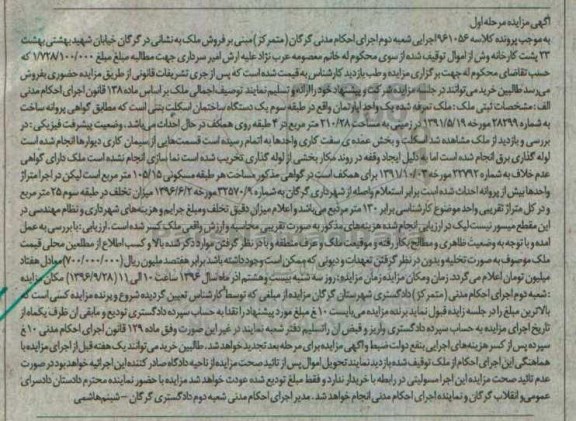 آگهی مزایده مرحله اول
به موجب پرونده کلاسه ۹۶۱۰۵۶ اجرایی شعبه دوم اجرای احکام مدنی گرگان (متمرکز) مبنی بر فروش ملک به نشانی در گرگان خیابان شهید بهشتی بهشت
۲۳ پشت کارخانه وش از اموال توقیف شده از سوی محکوم له خانم معصومه عرب نژاد علیه آرش امیر سرداری جهت مطالبه مبلغ مبلغ ۱/۷۲۸/۱۰۰/۰۰۰ که
حسب تقاضای محکوم له جهت برگزاری مزایده و طلب بازدید کارشناس به قیمت شده است که پس از جری تشریفات قانونی از طریق مزایده حضوری بفروش
می رسد طالبین خرید می توانند در جلسه مزایده شرکت و پیشنهاد خود را ارائه و تسلیم نمایند توصیف اجمالی ملک بر اساس ماده ۱۳۸ قانون اجرای احکام مدنی
الف: مشخصات ثبتی ملک: ملک تعرفه شده یک واحد آپارتمان واقع در طبقه سوم یک دستگاه ساختمان اسکلت بتنی است که مطابق گواهی پروانه ساخت
به شماره ۲۸۲۹۹ مورخه ۱۳۹۱/۵/۱۹ در زمینی به مساحت ۲۱۰/۲۸ متر مربع در ۴ طبقه روی همکف در حال احداث می باشد. وضعیت پیشرفت فیزیکی: در
بررسی و بازدید از ملک مشاهده شد اسکلت و بخش عمده ی سفت کاری واحدها به اتمام رسیده است قسمت هایی از سیمان کاری دیوارها انجام شده است
لوله گذاری برق انجام شده است اما به دلیل ایجاد وقفه در روند مکار بخشی از لوله گذاری تخریب شده است نما سازی انجام نشده است ملک دارای گواهی
عدم خلاف به شماره ۲۲۷۹۲ مورخه ۱۳۹۱/۱۰/۰۳ برای همکف است در گواهی مذکور مساحت هر طبقه مسکونی ۱۰۵/۱۵ متر مربع است لیکن در اجرا متراژ
واحدها بیش از پروانه احداث شده است برابر استعلام واصله از شهرداری گرگان به شماره ۳۲۵۷۰/۹ مورخه ۱۳۹۶/۶/۲ میزان تخلف در طبقه سوم ۲۵ متر مربع
و در کل متراژ تقریبی واحد موضوع کارشناسی برابر ۱۳۰ متر مربع می باشد و اعلام میزان دقیق تخلف و مبلغ جرایم و هزینه های شهرداری و نظام مهندسی در
این مقطع میسور نیست لیک در ارزیابی انجام شده هزینه های مذکور به صورت تقریبی محاسبه و ارزش واقعی ملک کسر شده است. ارزیابی: با بررسی به عمل
آمده و با توجه به وضعیت ظاهری و مصالح بکار رفته و موقعیت ملک و عرف منطقه و با در نظر گرفتن موارد ذکر شده بالا و کسب اطلاع از مطلعین محلی قیمت
ملک موصوف به صورت تخلیه و بدون در نظر گرفتن تعهدات و دیونی که ممکن است وجود داشته باشد برابر هفتصد میلیون ریال (۷۰۰/۰۰۰/۰۰۰) معادل هفتاد
میلیون تومان اعلام می گردد. زمان و مکان مزایده زمان مزایده: روز سه شنبه بیست و هشتم آذر ماه سال ۱۳۹۶ ساعت ۱۰ الی ۱۱ (۱۳۹۶/۹/۲۸) مکان مزایده
: شعبه دوم اجرای احکام مدنی (متمرکز) دادگستری شهرستان گرگان مزایده از مبلغی که توسط کارشناس تعیین گردیده شروع و برنده مزایده کسی است که
بالاترین مبلغ را در جلسه مزایده قبول نماید برنده مزایده می بایست ۱۰٪ مبلغ مورد پیشنهاد را نقدا به حساب سپرده دادگستری تودیع و مابقی آن ظرف یکماه از
تاریخ اجرای مزایده به حساب سپرده دادگستری واریز و فیض آن را تسلیم دفتر شعبه نمایند در غیر این صورت وفق ماده ۱۲۹ قانون اجرای احکام مدنی ۱۰٪
سپرده پس از کسر هزینه های اجرایی بنفع دولت ضبط و آگهی مزایده برای مرحله بعد تجدید خواهد شد. طالبین خرید می توانند یک هفته قبل از اجرای مزایده با
هماهنگی این اجرای احکام از ملک توقیف شده بازدید نمایند تحویل اموال پس از تائید صحت مزایده از ناحیه دادگاه صادر کننده این اجرائیه خواهد بود در صورت
عدم تائید صحت مزایده این اجرا مسولیتی در رابطه با خریدار ندارد و فقط مبلغ تودیع شده عودت خواهد شد مزایده با حضور نماینده محترم دادستان دادسرای
عمومی و انقلاب گرگان و نماینده اجرای احکام مدنی انجام خواهد شد. مدیر اجرای احکام مدنی شعبه دوم دادگستری گرگان – شبنم هاشمی